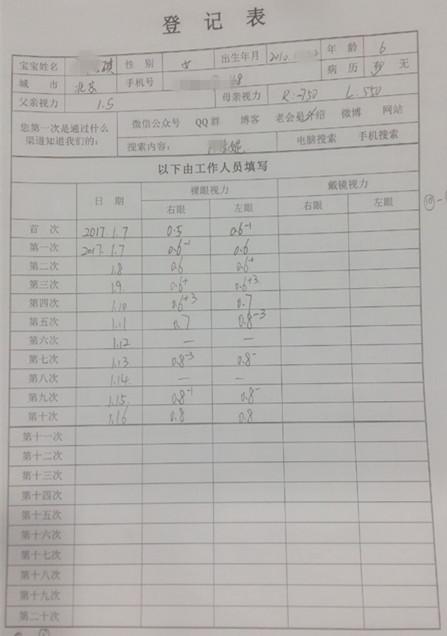 登记表
宝宝姓名 琪 性别 女 出生年月 2010. 年龄 6
城市 北京 手机号 8 病历 有 无
父亲视力 1.5 母亲视力 R -750 L. 550
您第一次是通过什么渠道知道我们的: 微信公众号 QQ群 博客 老会员介绍 微博 网站
搜索内容: 电脑搜索 手机搜索
以下由工作人员填写
日期 裸眼视力 戴镜视力
右眼 左眼 右眼 左眼
首次 2017.1.7 0.5 0.6-1
第一次 2017.1.7 0.6-1 0.6
第二次 1.8 0.6 0.6+
第三次 1.9 0.6+ 0.6+3
第四次 1.10 0.6+3 0.7
第五次 1.11 0.7 0.8-3
第六次 1.12 — —
第七次 1.13 0.8-3 0.8-
第八次 1.14 — —
第九次 1.15 0.8-1 0.8-
第十次 1.16 0.8 0.8
第十一次
第十二次
第十三次
第十四次
第十五次
第十六次
第十七次
第十八次
第十九次
第二十次